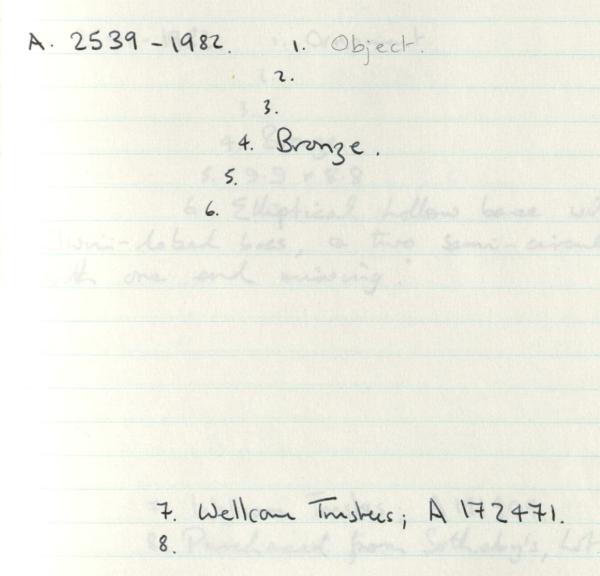 A. 2539-1982. 1. Object.
2.
3.
4. Bronze.
5.
6.
7. Wellcome Trustees; A 172471.
8.